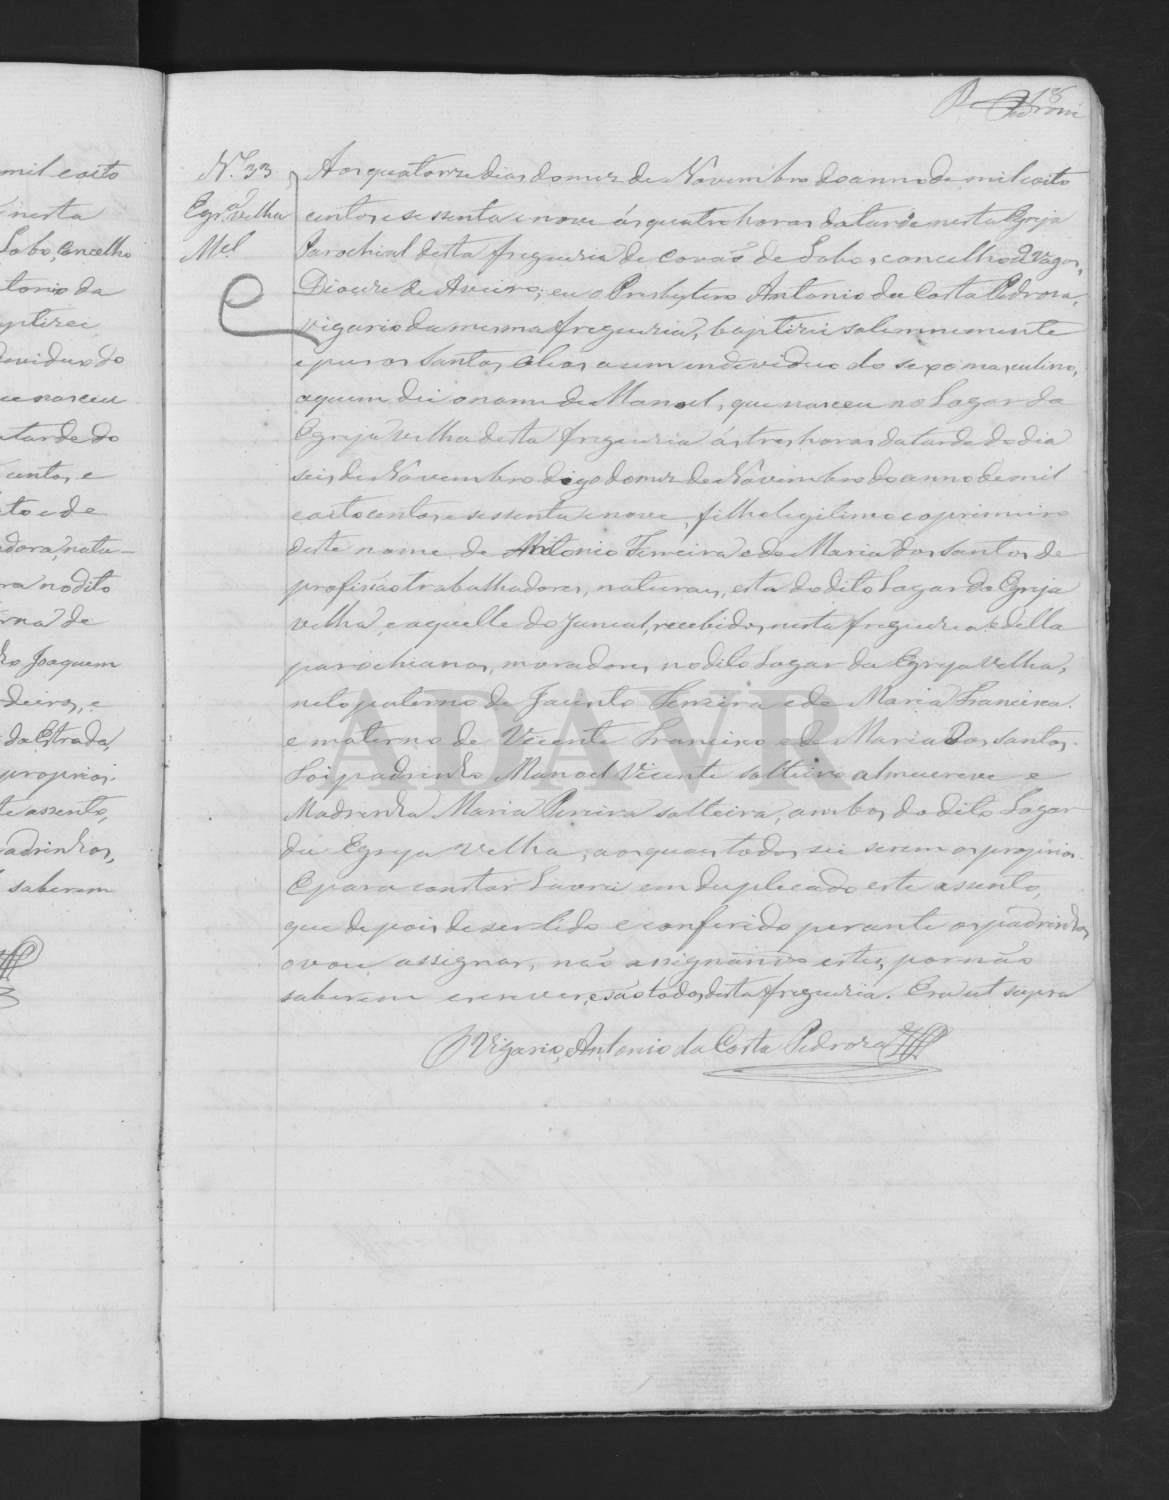 mil e oito
nesta
Lobo, Concelho
tonio da
aptizei
dividuo do
ue nasceu
tarde do
centos e
to e de
adora, natu-
ra no dito
rna de
Joaquem
deiro, e
da Estrada
proprios.
te assento,
padrinhos,
saberem
16
Pedroza
N.º 33
Egr.ª velha
M.el
Aos quatorze dias do mez de Novembro do anno de mil e oito
centos e sessenta e nove ás quatro horas da tarde nesta Egreja
Parochial desta freguezia de Covão de Lobo, concelho d Vagos,
Diocese de Aveiro, eu o Presbytero Antonio da Costa Pedroza,
vigario da mesma freguezia, baptizei solemnemente
e puz os Santos Oleos a um individuo do sexo masculino,
a quem dei o nome de Manoel, que nasceu no Lugar da
Egreja velha desta freguezia ás tres horas da tarde do dia
seis de Novembro digo do mez de Novembro do anno de mil
e oitocentos e sessenta e nove, filho legitimo e o primeiro
deste nome de Antonio Ferreira e de Maria dos Santos de
profissão trabalhadores, naturaes, esta do dito Lugar da Egreja
velha, e aquelle do Juncal, recebidos nesta freguezia e della
parochianos, moradores no dito Lugar da Egreja velha,
neto paterno de Jacinto Ferreira e de Maria Francisca
e materno de Vicente Francisco e de Maria dos Santos.
Foi padrinho Manoel Vicente solteiro almocreve e
Madrinha Maria Pereira solteira, ambos do dito Lugar
da Egreja velha, aos quaes todos sei serem os proprios.
E para constar Lavrei em duplicado este assento,
que depois de ser lido e conferido perante os padrinhos
o vou assignar, não assignando estes, por não
saberem escrever, e são todos desta freguezia. Era ut supra
O Vigario, Antonio da Costa Pedroza
ADAVR